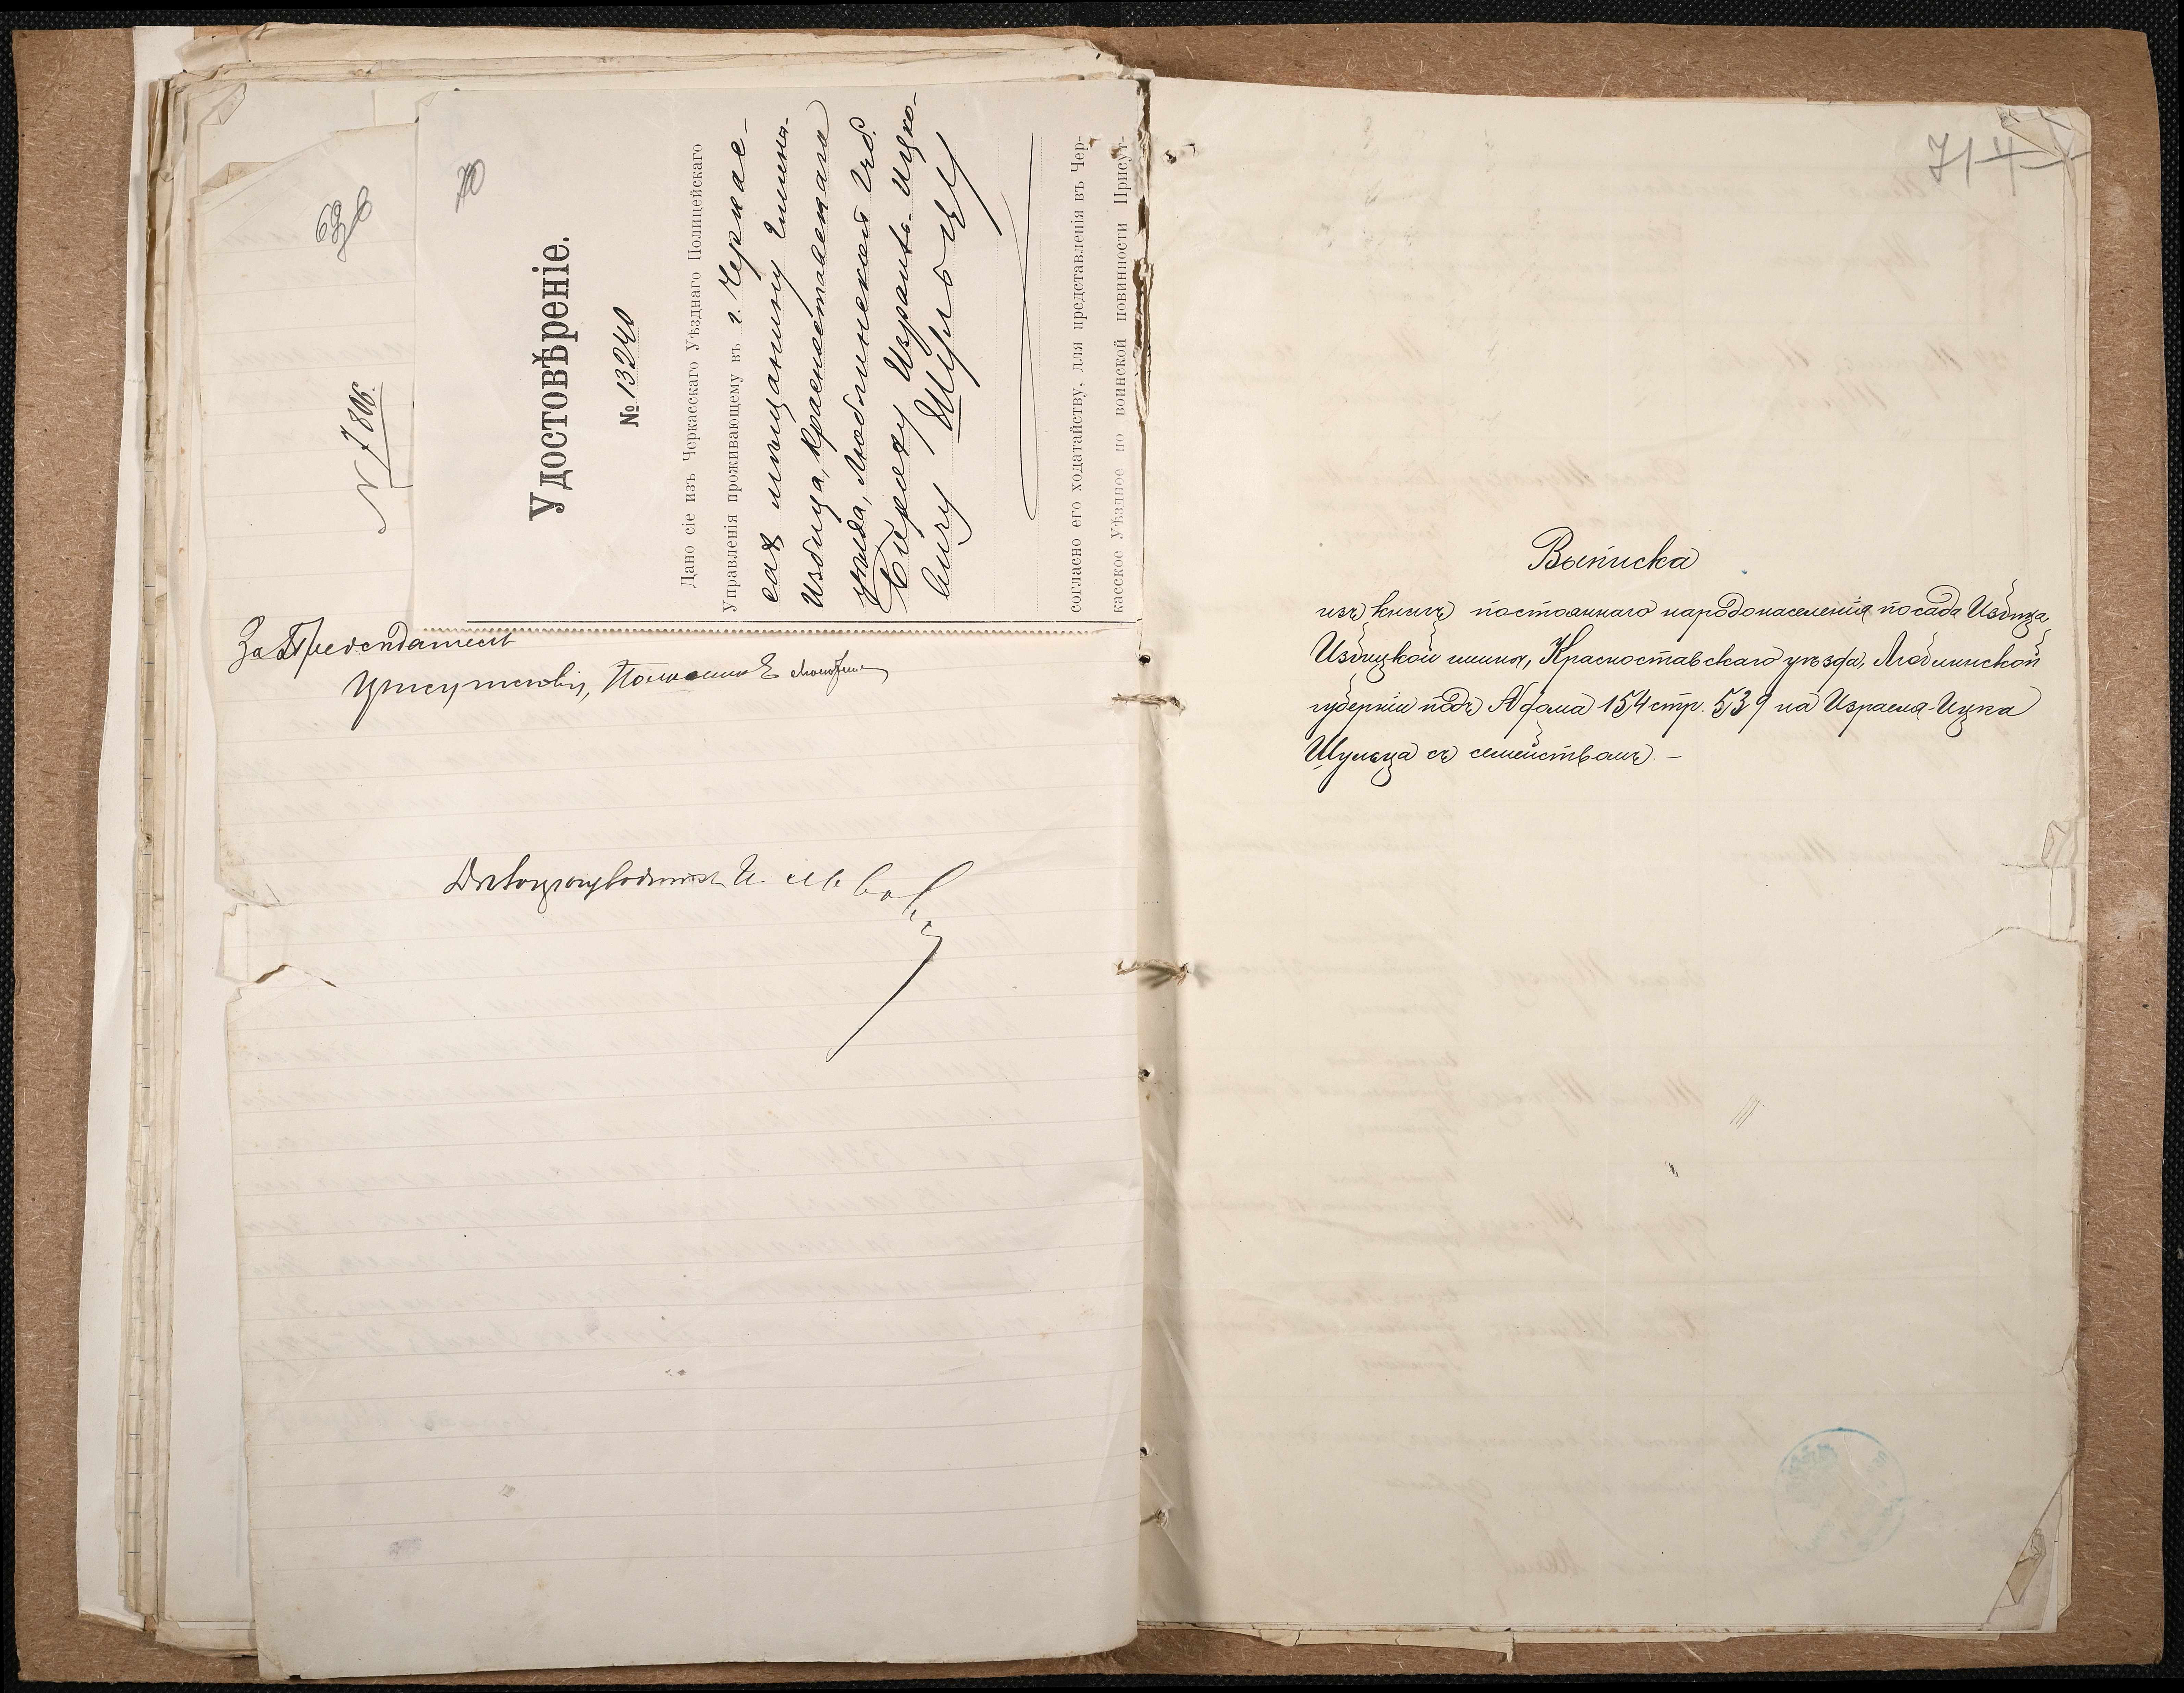 70
Удостовѣреніе.
№ 13240
Дано сіе изъ Черкасскаго Уѣзднаго Полицейскаго
Управленія проживающему въ г. Черкас-
сах мѣщанину гмины
Избица, Красноставскаго
уѣзда, Люблинской губ.
Израиль-Ицко-
вичу Шульцу
согласно его ходатайству, для представленія въ Чер-
касское Уѣздное по воинской повинности Присут-
69
N 7
За Предсѣдателя
Присутствія, Помощник
Дѣлопроизводитель
71
Выписка
изъ книгъ постояннаго народонаселенія посада Избица,
Избицкой гмины, Красноставскаго уѣзда, Люблинской
губерніи подъ № дома 154 стр. 539 на Израеля-Ицка
Шульца съ семействомъ. –